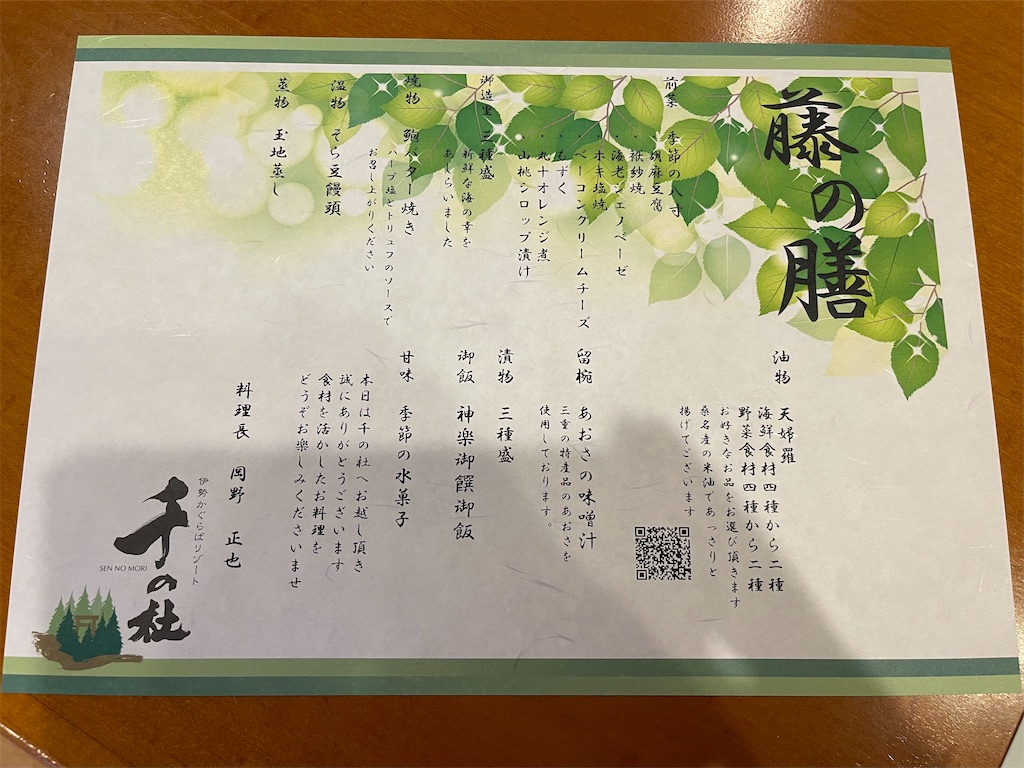 藤の膳
前菜 季節の八寸
・胡麻豆腐
・袱紗焼
・海老ジェノベーゼ
・ホキ塩焼
・ベーコンクリームチーズ
・もずく
・丸十オレンジ煮
・山桃シロップ漬け
御造里 三種盛
新鮮な海の幸を
あしらいました
焼物 鮑バター焼き
ハーブ塩とトリュフのソースで
お召し上がりください
温物 そら豆饅頭
蒸物 玉地蒸し
油物 天婦羅
海鮮食材四種から二種
野菜食材四種から二種
お好きなお品をお選び頂きます
桑名産の米油であっさりと
揚げてございます
留椀 あおさの味噌汁
三重の特産品のあおさを
使用しております。
漬物 三種盛
御飯 神楽御饌御飯
甘味 季節の水菓子
本日は千の杜へお越し頂き
誠にありがとうございます
食材を活かしたお料理を
どうぞお楽しみくださいませ
料理長 岡野 正也
伊勢かぐらばリゾート
千の杜
SEN NO MORI